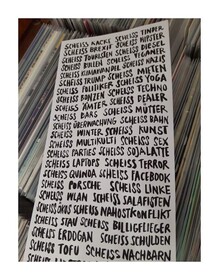 SCHEISS KACKE SCHEISS TINDER
SCHEISS BREXIT SCHEISS HIPSTER
SCHEISS TOURISTEN SCHEISS DIESEL
SCHEISS BULLEN SCHEISS VEGANER
SCHEISS KLIMAWANDEL SCHEISS NAZIS
SCHEISS TRUMP SCHEISS MIETEN
SCHEISS POLITIKER SCHEISS YOGA
SCHEISS BONZEN SCHEISS TECHNO
SCHEISS VÄTER SCHEISS DEALER
SCHEISS BARS SCHEISS MÜTTER
SCHEISS ÜBERWACHUNG SCHEISS BAHN
SCHEISS WINTER SCHEISS KUNST
SCHEISS MULTIKULTI SCHEISS SEX
SCHEISS PARTIES SCHEISS SOJALATTE
SCHEISS LAPTOPS SCHEISS TERROR
SCHEISS QUINOA SCHEISS FACEBOOK
SCHEISS PORSCHE SCHEISS LINKE
SCHEISS WLAN SCHEISS SALAFISTEN
SCHEISS SCHEISS NAHOSTKONFLIKT
SCHEISS STAU SCHEISS BILLIGFLIEGER
SCHEISS ERDOGAN SCHEISS SCHULDEN
SCHEISS TOFU SCHEISS NACHBARN